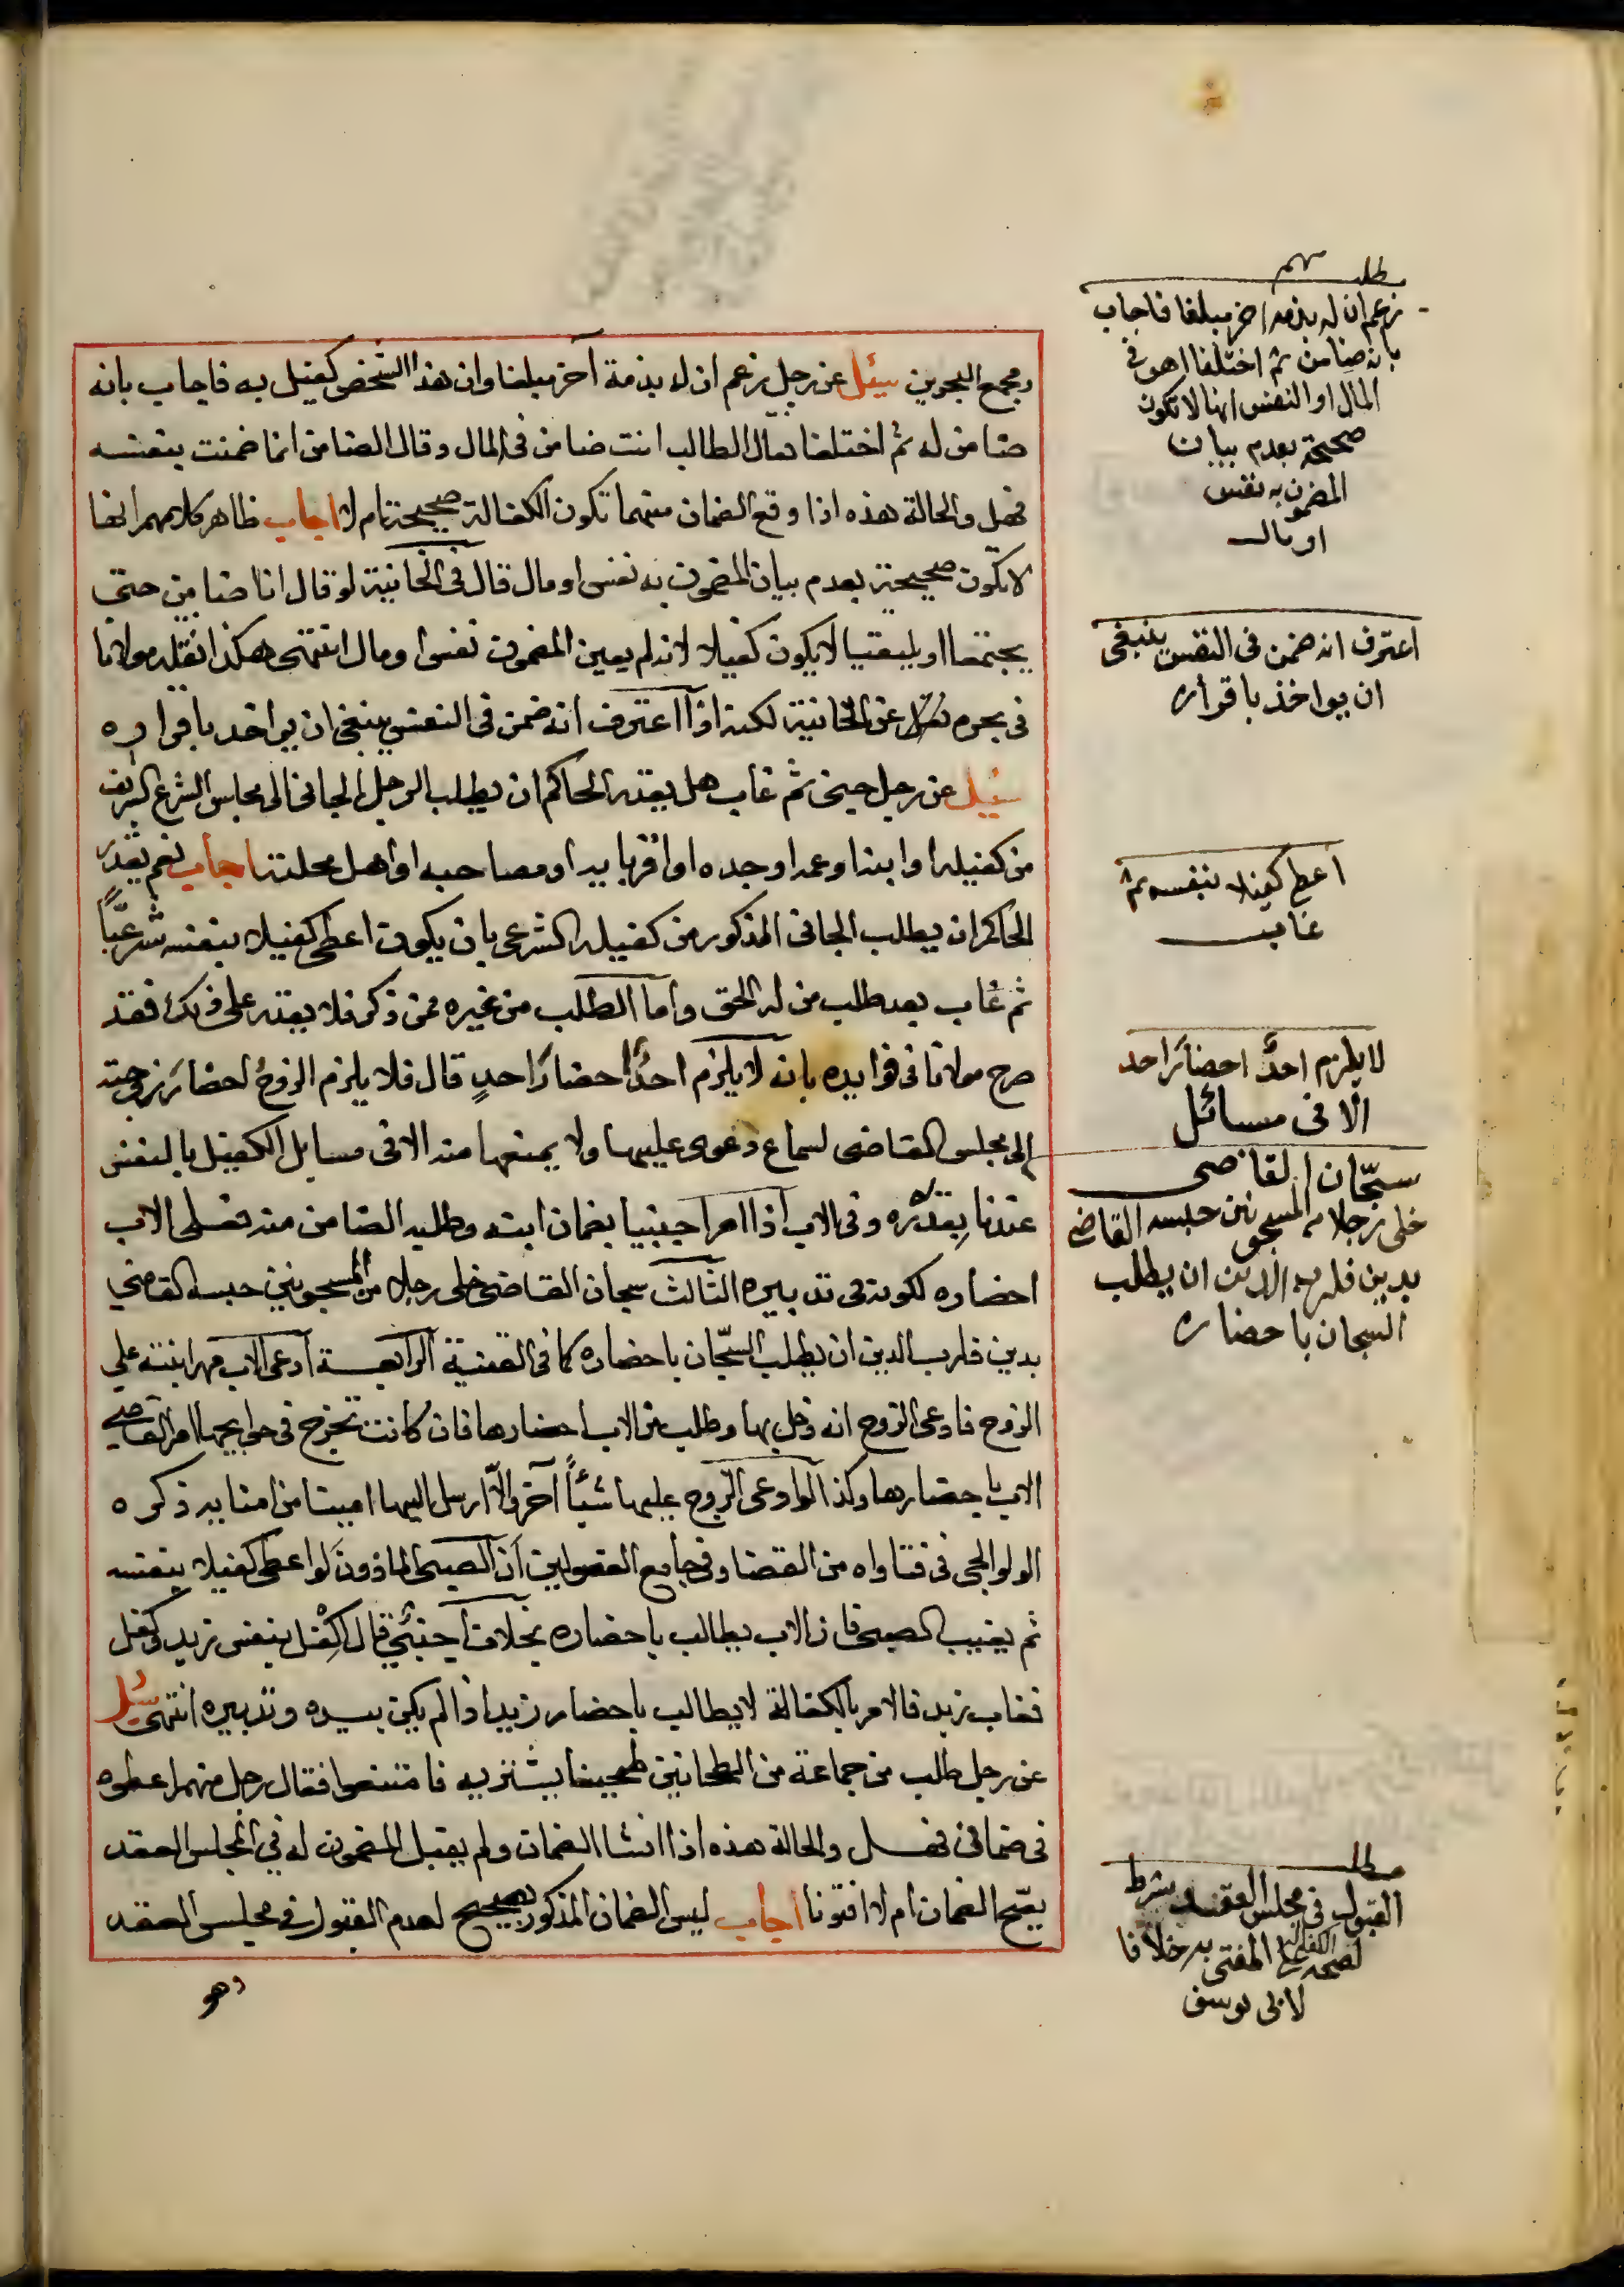 ومجمع البحرين سئل عن رجل زعم ان له بذمة آخر مبلغا وان هذا الشخص كفيل به فاجاب بانه
ضامن له ثم اختلفا فقال الطالب انت ضامن في المال وقال الضامن انما ضمنت بنفسه
فهل والحالة هذه اذا وقع الضمان منهما تكون الكفالة صحيحة ام لا اجاب ظاهر كلامهم انها
لا تكون صحيحة بعدم بيان المضمون به نفس او مال قال في الخانية لو قال انا ضامن حتى
يجتمعا او يلتقيا لا يكون كفيلا لانه لم يعين المضمون نفس او مال انتهى هكذا نقله مولانا
في بحره نقلا عن الخانية لكنه اذا اعترف انه ضمن في النفس ينبغي ان يواخذ باقراره
سئل عن رجل جنى ثم غاب هل يقدر الحاكم ان يطلب الرجل الجاني الى مجلس الشرع الشريف
من كفيله او ابنه او عمه او جده او اقربايه او مصاحبه او اهل محلته اجاب نعم يقدر
الحاكم ان يطلب الجاني المذكور من كفيله الشرعي بان يكون اعطى كفيلا بنفسه شرعيا
ثم غاب بعد طلب من له الحق واما الطلب من غيره ممن ذكر فلا يقدر على ذلك فقد
صرح مولانا في فوايده بانه لا يلزم احدًا احضار احدٍ قال فلا يلزم الزوج احضار زوجته
الى مجلس القاضي لسماع دعوى عليها ولا يمنعها منه الا في مسايل الكفيل بالنفس
عندنا بقدره وفي الاب اذا امر اجنبيا بضمان ابنه وطلبه الضامن منه فعلى الاب
احضاره لكونه في تدبيره الثالث سجان القاضي خلى رجلا من المسجونين حبسه القاضي
بدين فلرب الدين ان يطلب السجّان باحضاره كما في القنية الرابعة ادعى الاب مهر ابنته على
الزوج فادعى الزوج انه دخل بها وطلب من الاب احضارها فان كانت تخرج في حوايجها امر القاضي
الاب باحضارها وكذا لو ادعى الزوج عليها شيئًا آخر والّا ارسل اليها امينا من امنايه ذكره
الولوالجي في فتاواه من القضا وفي جامع الفصولين ان الصبي الماذون لو اعطى كفيلا بنفسه
ثم يغيب الصبي فان الاب يطالب باحضاره بخلاف اجنبي قال اكفل بنفس زيد فكفل
فغاب زيد فالامر بالكفالة لا يطالب باحضار زيد اذا لم يكن بيده وتدبيره انتهى سئل
عن رجل طلب من جماعة من الطحانين طحينا يشتريه فامتنعوا فقال رجل منهم اعطوه
في ضماني فهل والحالة هذه اذا انشا الضمان ولم يقبل المضمون له في المجلس العقد
يصّح الضمان ام لا افتونا اجاب ليس الضمان المذكور بصحيح لعدم القبول في مجلس العقد
وهو
مطلب مهم
زعم ان له بذمة اخر مبلغا فاجاب
بانه ضامن ثم اختلفا اهو في
المال او النفس انها لا تكون
صحيحة بعدم بيان
المضمون به نفس
او مال
اعترف انه ضمن في النفس ينبغي
ان يواخذ باقراره
اعطى كفيلا بنفسه ثم
غاب
لا يلزم احدٌ احضار احد
الا في مسائل
سجّان القاضي
خلى رجلا من المسجونين حبسه القاضي
بدين فلرب الدين ان يطلب
السجان باحضاره
مطلب
القبول في مجلس العقد شرط
لصحة الكفالة على المفتى به خلافا
لابي يوسف